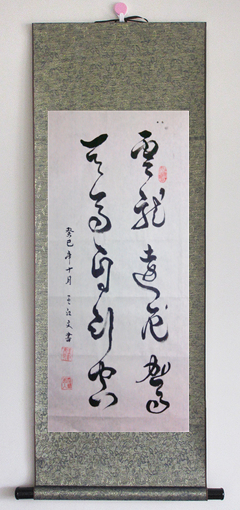 雲龍遠飛駕
天馬自行空
癸巳年十月